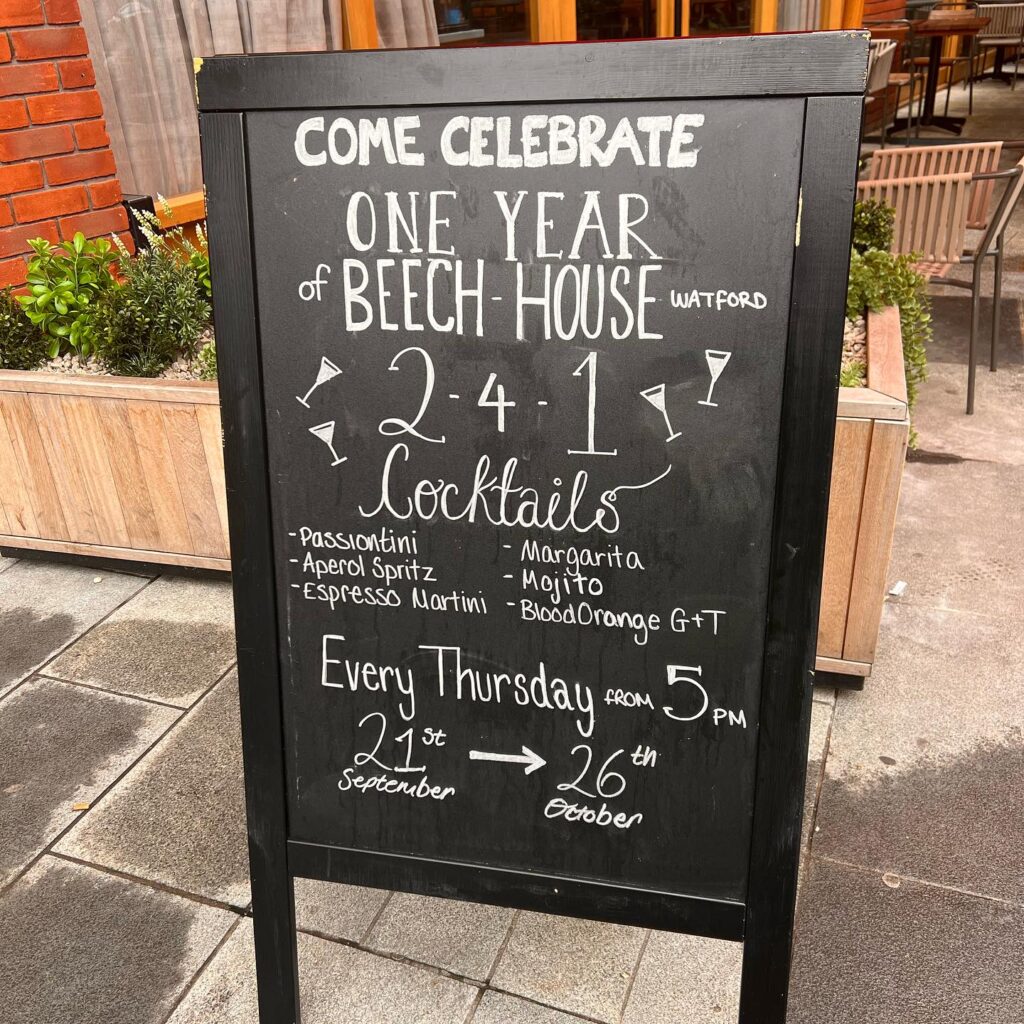 COME CELEBRATE
ONE YEAR
of BEECH-HOUSE WATFORD
2-4-1
Cocktails
- Passiontini
- Aperol Spritz
- Espresso Martini
- Margarita
- Mojito
- Blood Orange G+T
Every Thursday FROM 5 PM
21st September → 26th October